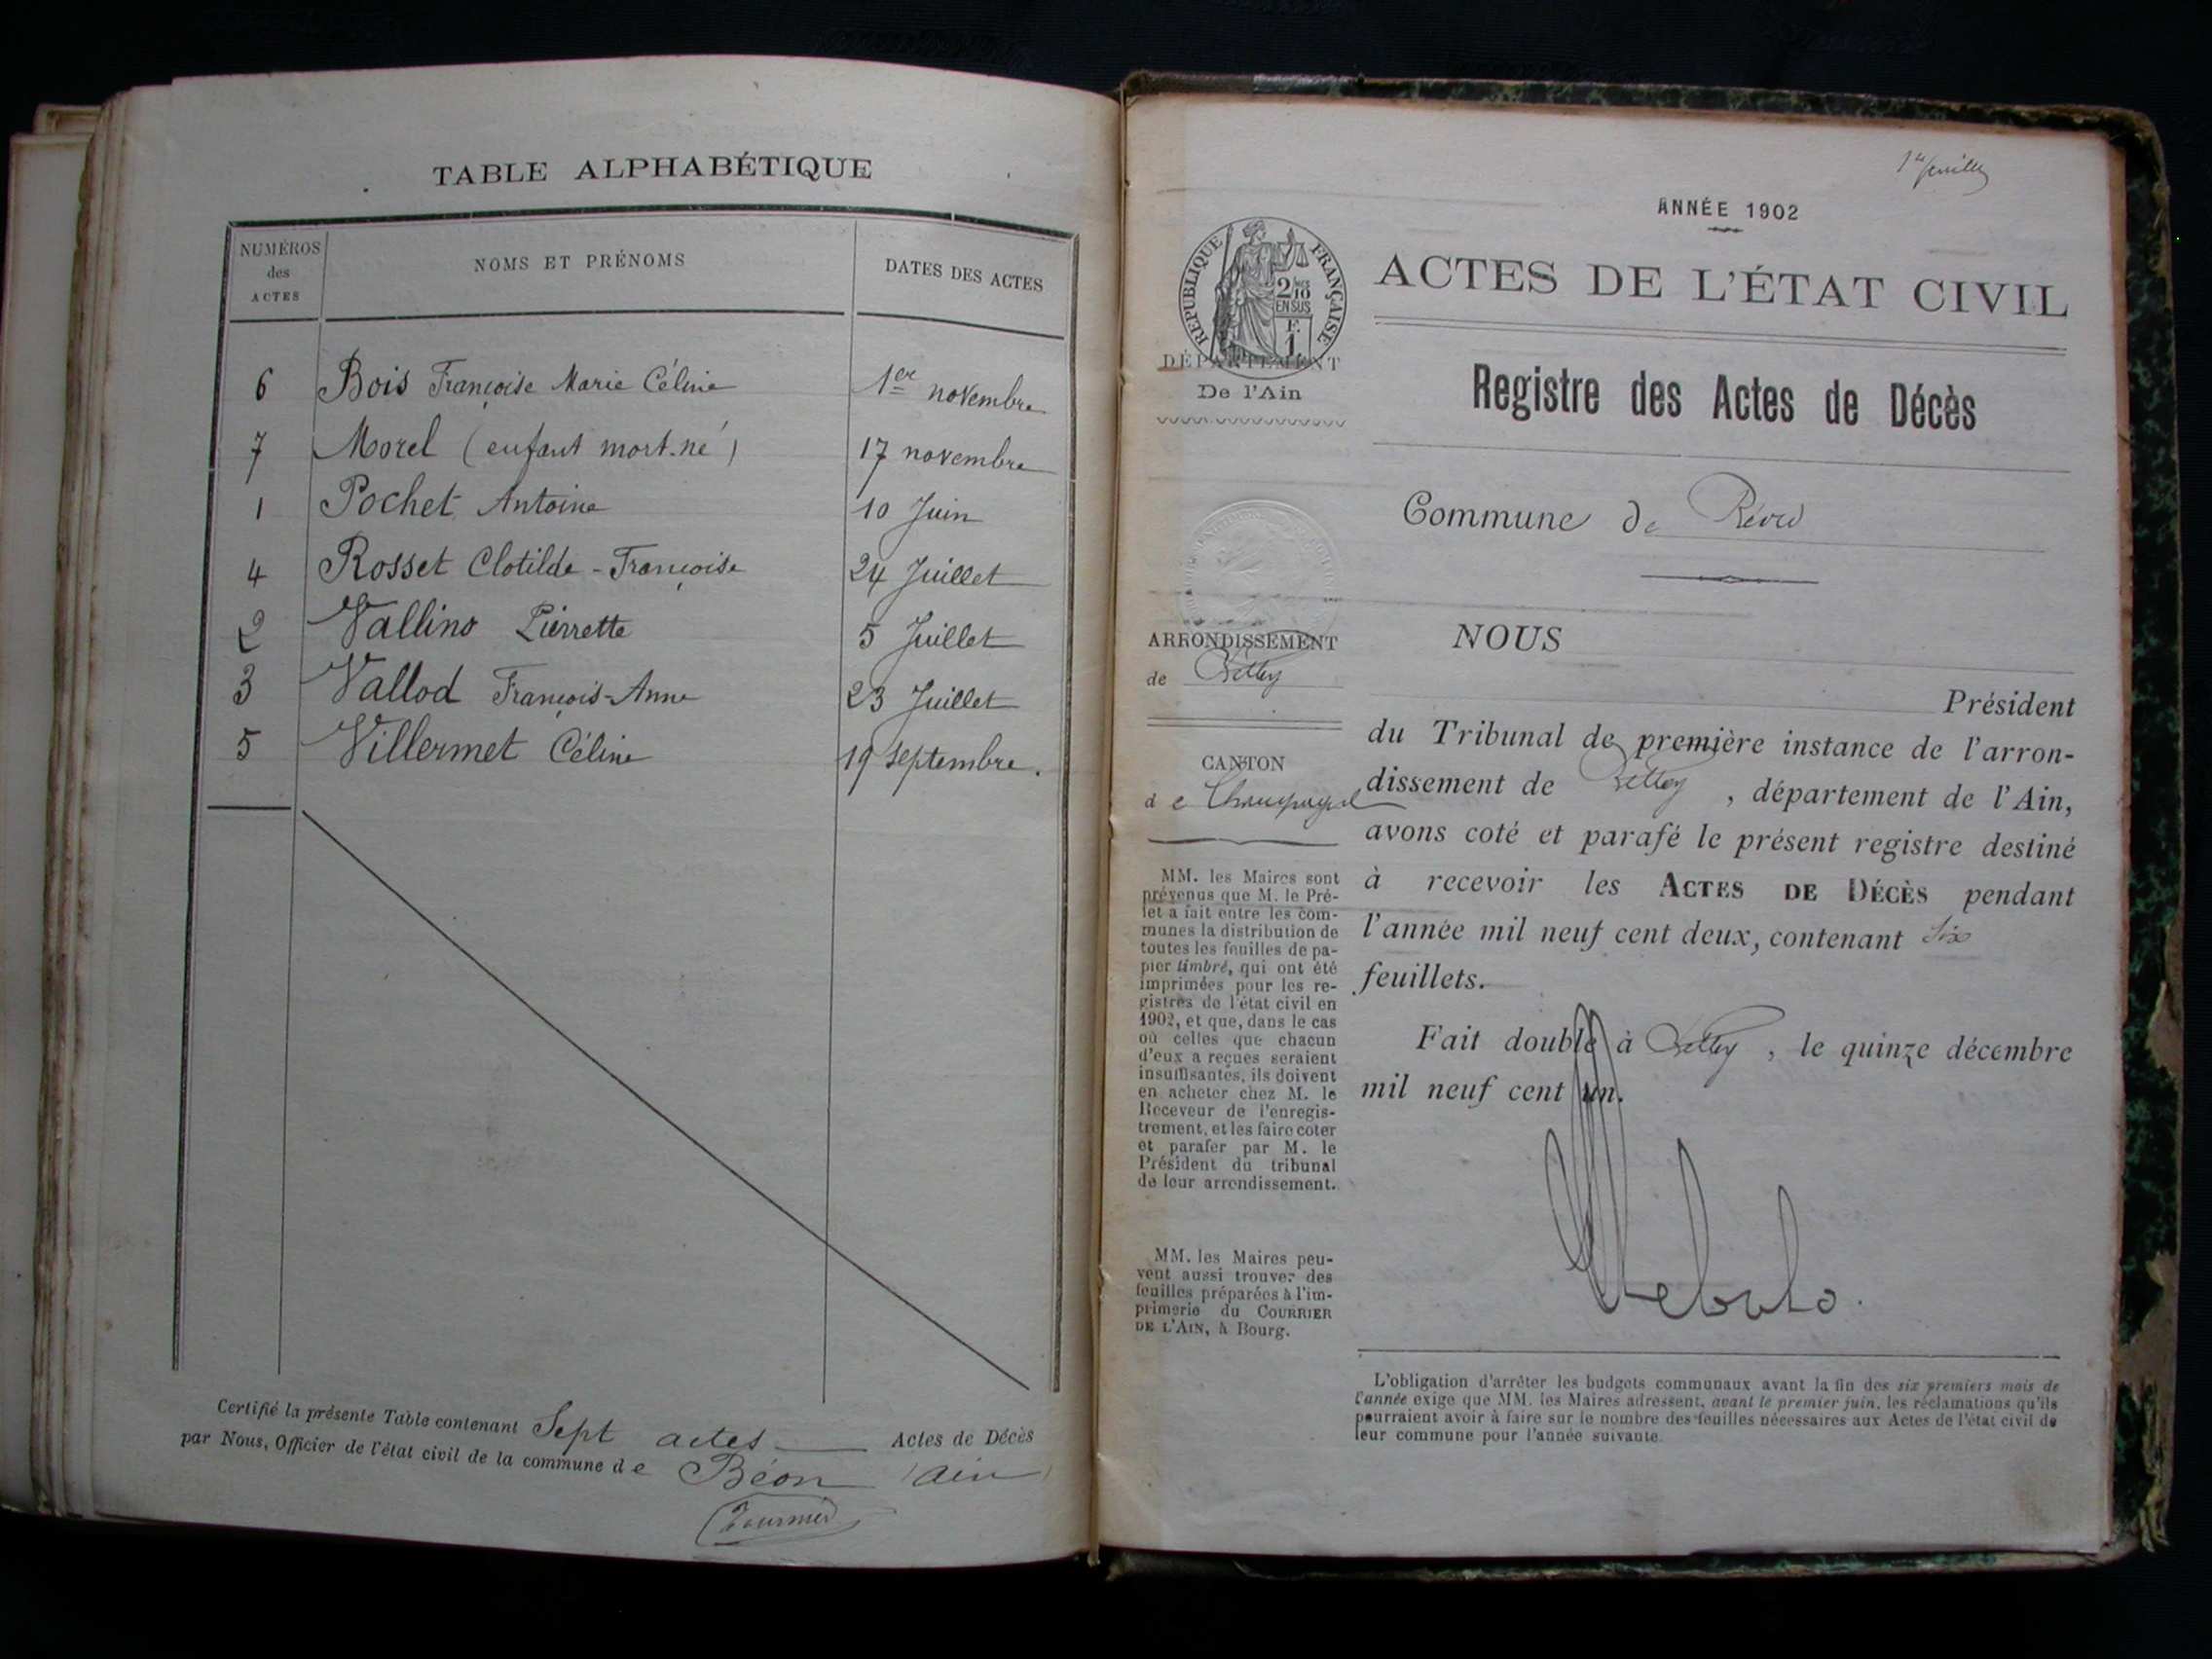 TABLE ALPHABÉTIQUE
NUMÉROS des ACTES
NOMS ET PRÉNOMS
DATES DES ACTES
6 Bois Françoise Marie Céline 1er novembre
7 Morel (enfant mort-né) 17 novembre
1 Pochet Antoine 10 Juin
4 Rosset Clotilde-Françoise 24 Juillet
2 Vallino Pierrette 5 Juillet
3 Vallod François-Anne 23 Juillet
5 Villermet Céline 19 septembre.
Certifié la présente Table contenant Sept actes Actes de Décès
par Nous, Officier de l'état civil de la commune de Béon (Ain)
ANNÉE 1902
RÉPUBLIQUE FRANÇAISE
2/10
EN SUS
F.
1
ACTES DE L'ÉTAT CIVIL
DÉPARTEMENT
De l'Ain
Registre des Actes de Décès
Commune de
ARRONDISSEMENT
de Belley
CANTON
de Champagne
MM. les Maires sont
prévenus que M. le Pré-
fet a fait entre les com-
munes la distribution de
toutes les feuilles de pa-
pier timbré, qui ont été
imprimées pour les re-
gistres de l'état civil en
1902, et que, dans le cas
où celles que chacun
d'eux a reçues seraient
insuffisantes, ils doivent
en acheter chez M. le
Receveur de l'enregis-
trement, et les faire coter
et parafer par M. le
Président du tribunal
de leur arrondissement.
MM. les Maires peu-
vent aussi trouver des
feuilles préparées à l'im-
primerie du COURRIER
DE L'AIN, à Bourg.
NOUS
Président
du Tribunal de première instance de l'arron-
dissement de Belley, département de l'Ain,
avons coté et parafé le présent registre destiné
à recevoir les ACTES DE DÉCÈS pendant
l'année mil neuf cent deux, contenant six
feuillets.
Fait double à Belley, le quinze décembre
mil neuf cent un.
L'obligation d'arrêter les budgets communaux avant la fin des six premiers mois de
l'année exige que MM. les Maires adressent, avant le premier juin, les réclamations qu'ils
pourraient avoir à faire sur le nombre des feuilles nécessaires aux Actes de l'état civil de
leur commune pour l'année suivante.